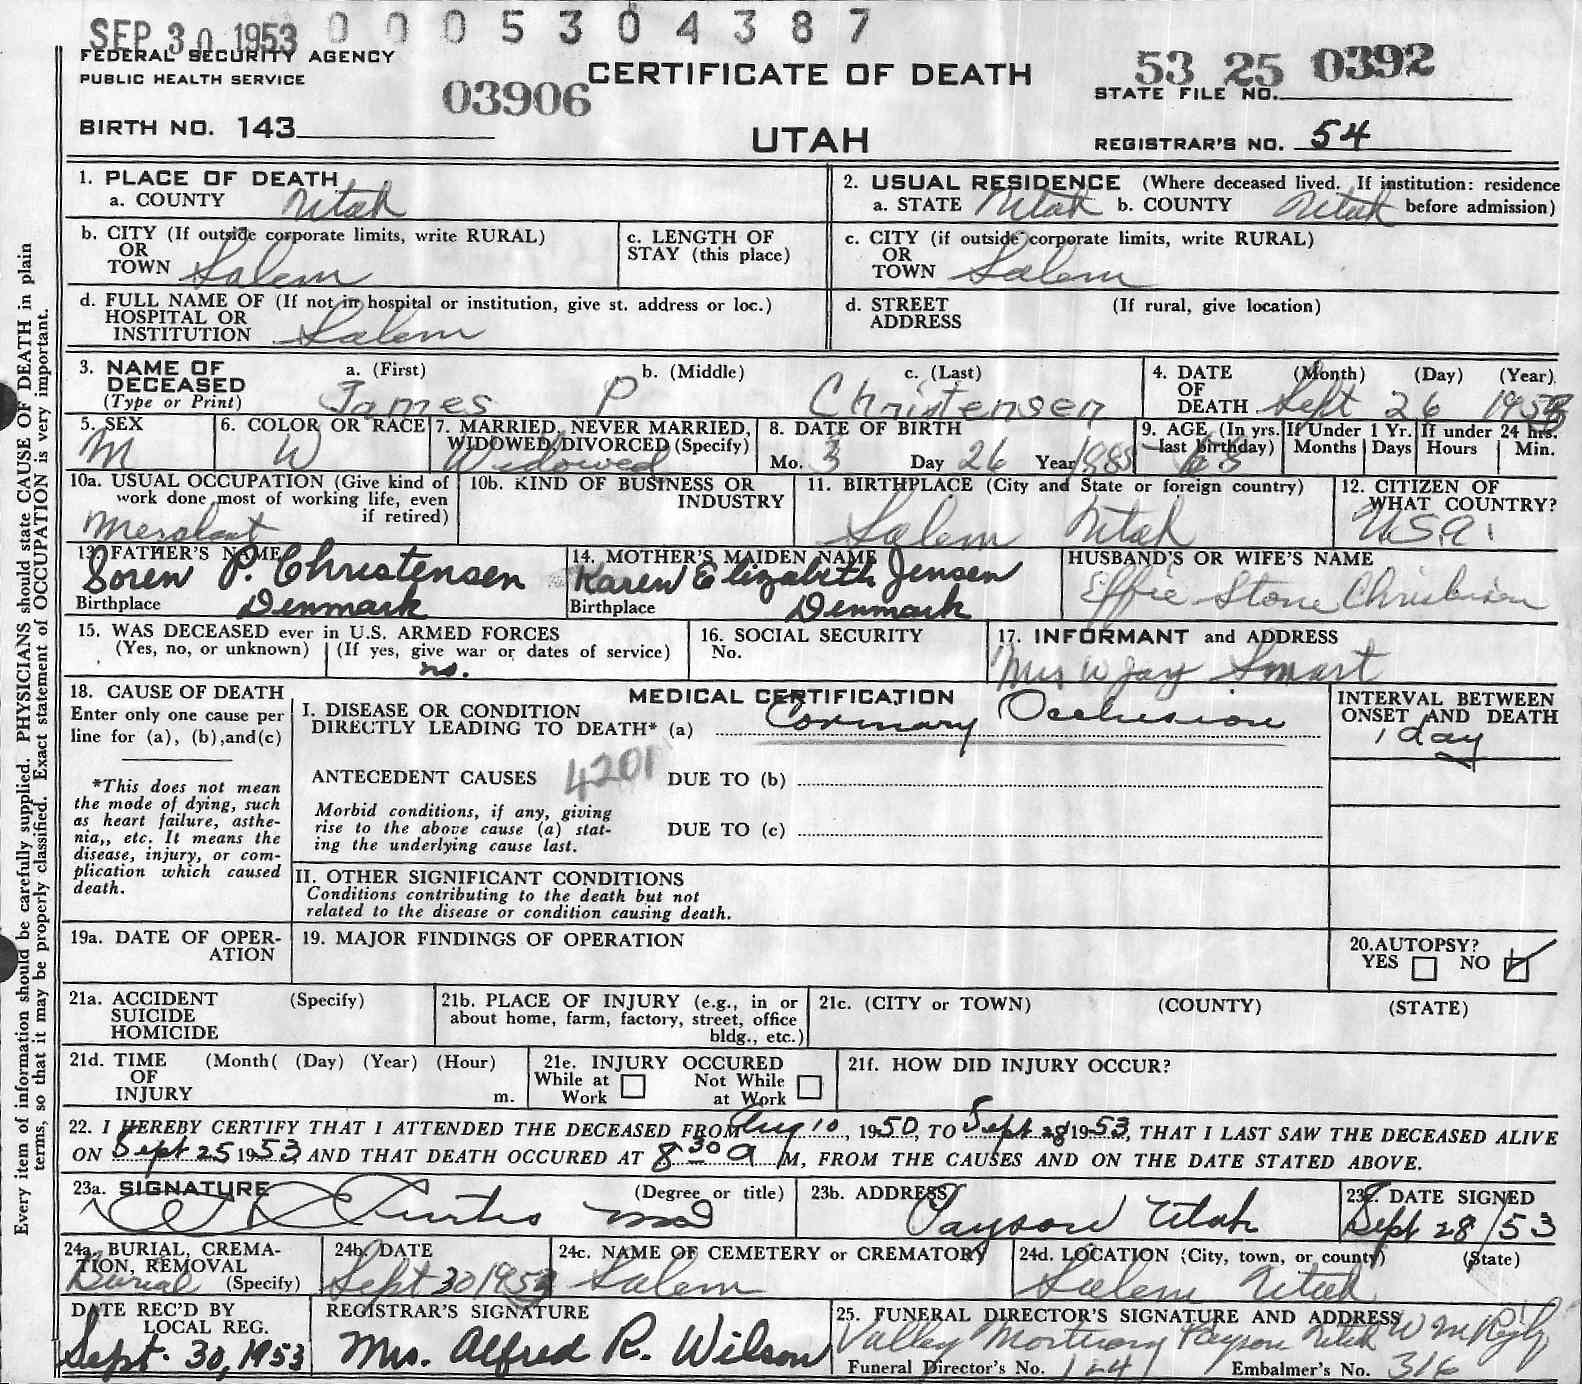 SEP 30 1953 0005304387
FEDERAL SECURITY AGENCY
PUBLIC HEALTH SERVICE
03906
CERTIFICATE OF DEATH
53 25 0392
STATE FILE NO.
BIRTH NO. 143
UTAH
REGISTRAR'S NO. 54
1. PLACE OF DEATH
a. COUNTY Utah
2. USUAL RESIDENCE (Where deceased lived. If institution: residence
a. STATE Utah b. COUNTY Utah before admission)
b. CITY (If outside corporate limits, write RURAL)
OR
TOWN Salem
c. LENGTH OF
STAY (this place)
c. CITY (if outside corporate limits, write RURAL)
OR
TOWN Salem
d. FULL NAME OF (If not in hospital or institution, give st. address or loc.)
HOSPITAL OR
INSTITUTION Salem
d. STREET (If rural, give location)
ADDRESS
3. NAME OF
DECEASED
(Type or Print)
a. (First) b. (Middle) c. (Last)
James P Christensen
4. DATE (Month) (Day) (Year)
OF
DEATH Sept 26 1953
5. SEX
M
6. COLOR OR RACE
W
7. MARRIED, NEVER MARRIED,
WIDOWED, DIVORCED (Specify)
Widowed
8. DATE OF BIRTH
Mo. 3 Day 26 Year 1885
9. AGE (In yrs.
last birthday) 68
If Under 1 Yr.
Months Days
If under 24 hrs.
Hours Min.
10a. USUAL OCCUPATION (Give kind of
work done most of working life, even
if retired)
Merchant
10b. KIND OF BUSINESS OR
INDUSTRY
11. BIRTHPLACE (City and State or foreign country)
Salem Utah
12. CITIZEN OF
WHAT COUNTRY?
U.S.A.
13. FATHER'S NAME
Soren P. Christensen
Birthplace Denmark
14. MOTHER'S MAIDEN NAME
Karen Elizabeth Jensen
Birthplace Denmark
HUSBAND'S OR WIFE'S NAME
Effie Stone Christensen
15. WAS DECEASED ever in U.S. ARMED FORCES
(Yes, no, or unknown) (If yes, give war or dates of service)
no.
16. SOCIAL SECURITY
No.
17. INFORMANT and ADDRESS
Mrs W Jay Smart
18. CAUSE OF DEATH
Enter only one cause per
line for (a), (b),and(c)
*This does not mean
the mode of dying, such
as heart failure, asthe-
nia,, etc. It means the
disease, injury, or com-
plication which caused
death.
MEDICAL CERTIFICATION
I. DISEASE OR CONDITION
DIRECTLY LEADING TO DEATH* (a) Coronary Occlusion
ANTECEDENT CAUSES 4201 DUE TO (b)
Morbid conditions, if any, giving
rise to the above cause (a) stat-
ing the underlying cause last.
DUE TO (c)
INTERVAL BETWEEN
ONSET AND DEATH
1 day
II. OTHER SIGNIFICANT CONDITIONS
Conditions contributing to the death but not
related to the disease or condition causing death.
19a. DATE OF OPER-
ATION
19. MAJOR FINDINGS OF OPERATION
20.AUTOPSY?
YES NO
21a. ACCIDENT (Specify)
SUICIDE
HOMICIDE
21b. PLACE OF INJURY (e.g., in or
about home, farm, factory, street, office
bldg., etc.)
21c. (CITY or TOWN) (COUNTY) (STATE)
21d. TIME (Month( (Day) (Year) (Hour)
OF
INJURY m.
21e. INJURY OCCURED
While at Not While
Work at Work
21f. HOW DID INJURY OCCUR?
22. I HEREBY CERTIFY THAT I ATTENDED THE DECEASED FROM Aug 10, 1950, TO Sept 28 1953, THAT I LAST SAW THE DECEASED ALIVE
ON Sept 25 1953, AND THAT DEATH OCCURED AT 8 30 A M, FROM THE CAUSES AND ON THE DATE STATED ABOVE.
23a. SIGNATURE (Degree or title)
Curtis MD
23b. ADDRESS
Payson Utah
23c. DATE SIGNED
Sept 28/53
24a. BURIAL, CREMA-
TION, REMOVAL
Burial (Specify)
24b. DATE
Sept 30 1953
24c. NAME OF CEMETERY or CREMATORY
Salem
24d. LOCATION (City, town, or county) (State)
Salem Utah
DATE REC'D BY
LOCAL REG.
Sept. 30, 1953
REGISTRAR'S SIGNATURE
Mrs. Alfred R. Wilson
25. FUNERAL DIRECTOR'S SIGNATURE AND ADDRESS
Valley Mortuary Payson Utah
Funeral Director's No. 124 Embalmer's No. 316
Every item of information should be carefully supplied. PHYSICIANS should state CAUSE OF DEATH in plain
terms, so that it may be properly classified. Exact statement of OCCUPATION is very important.